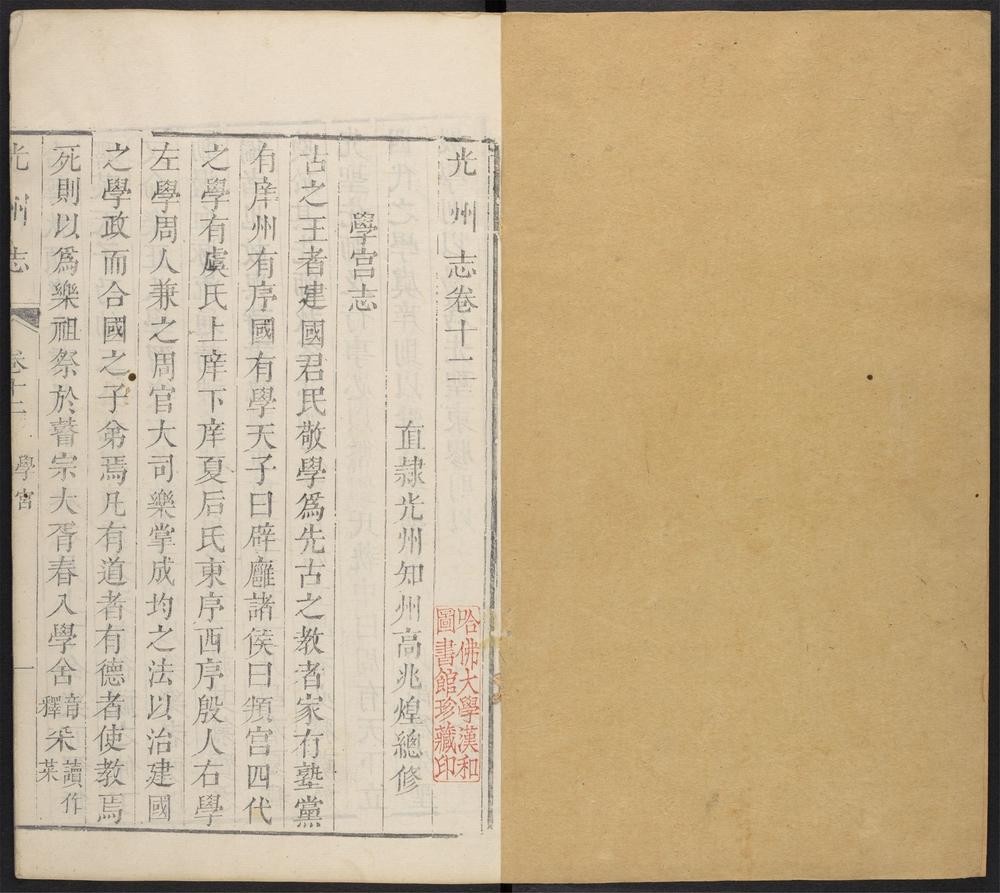 光州志卷十二
直隸光州知州高兆煌總修
哈佛大學漢和
圖書館珍藏印
學宫志
古之王者建國君民敎學爲先古之教者家有塾黨
有庠州有序國有學天子曰辟廱諸侯曰頖宫四代
之學有虞氏上庠下庠夏后氏東序西序殷人右學
左學周人兼之周官大司樂掌成均之法以治建國
之學政而合國之子弟焉凡有道者有德者使教焉
死則以爲樂祖祭於瞽宗大胥春入學舍音釋采讀作菜
光州志
卷十二
學宫
一